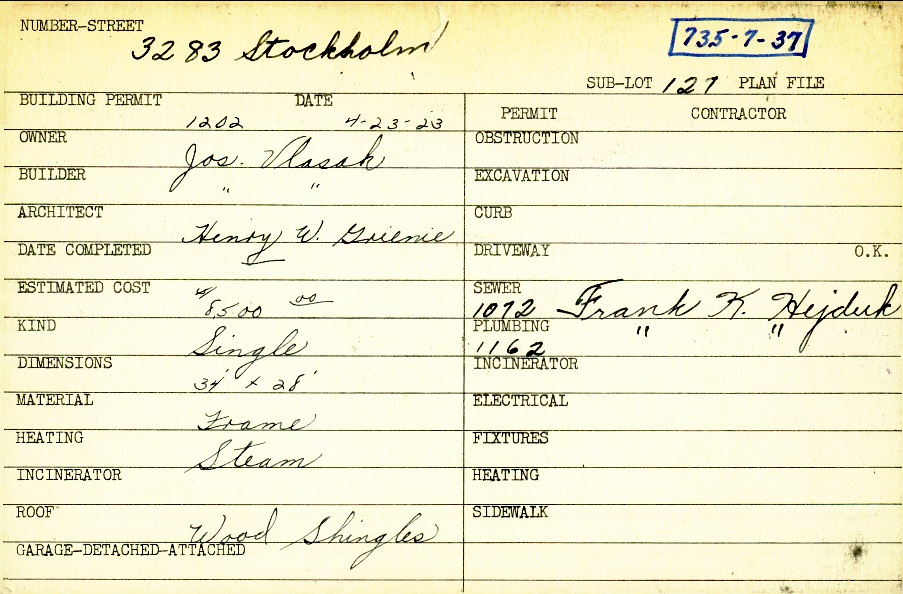 NUMBER-STREET
3283 Stockholm
735-7-37
SUB-LOT 127 PLAN FILE
BUILDING PERMIT DATE
1202 4-23-23
OWNER
Jos. Vlasak
BUILDER
" "
ARCHITECT
Henry W. Grienie
DATE COMPLETED
ESTIMATED COST
$8500 00
KIND
Single
DIMENSIONS
34' x 28'
MATERIAL
Frame
HEATING
Steam
INCINERATOR
ROOF
Wood Shingles
GARAGE-DETACHED-ATTACHED
PERMIT CONTRACTOR
OBSTRUCTION
EXCAVATION
CURB
DRIVEWAY O.K.
SEWER
1072 Frank K. Hejduk
PLUMBING " "
1162
INCINERATOR
ELECTRICAL
FIXTURES
HEATING
SIDEWALK